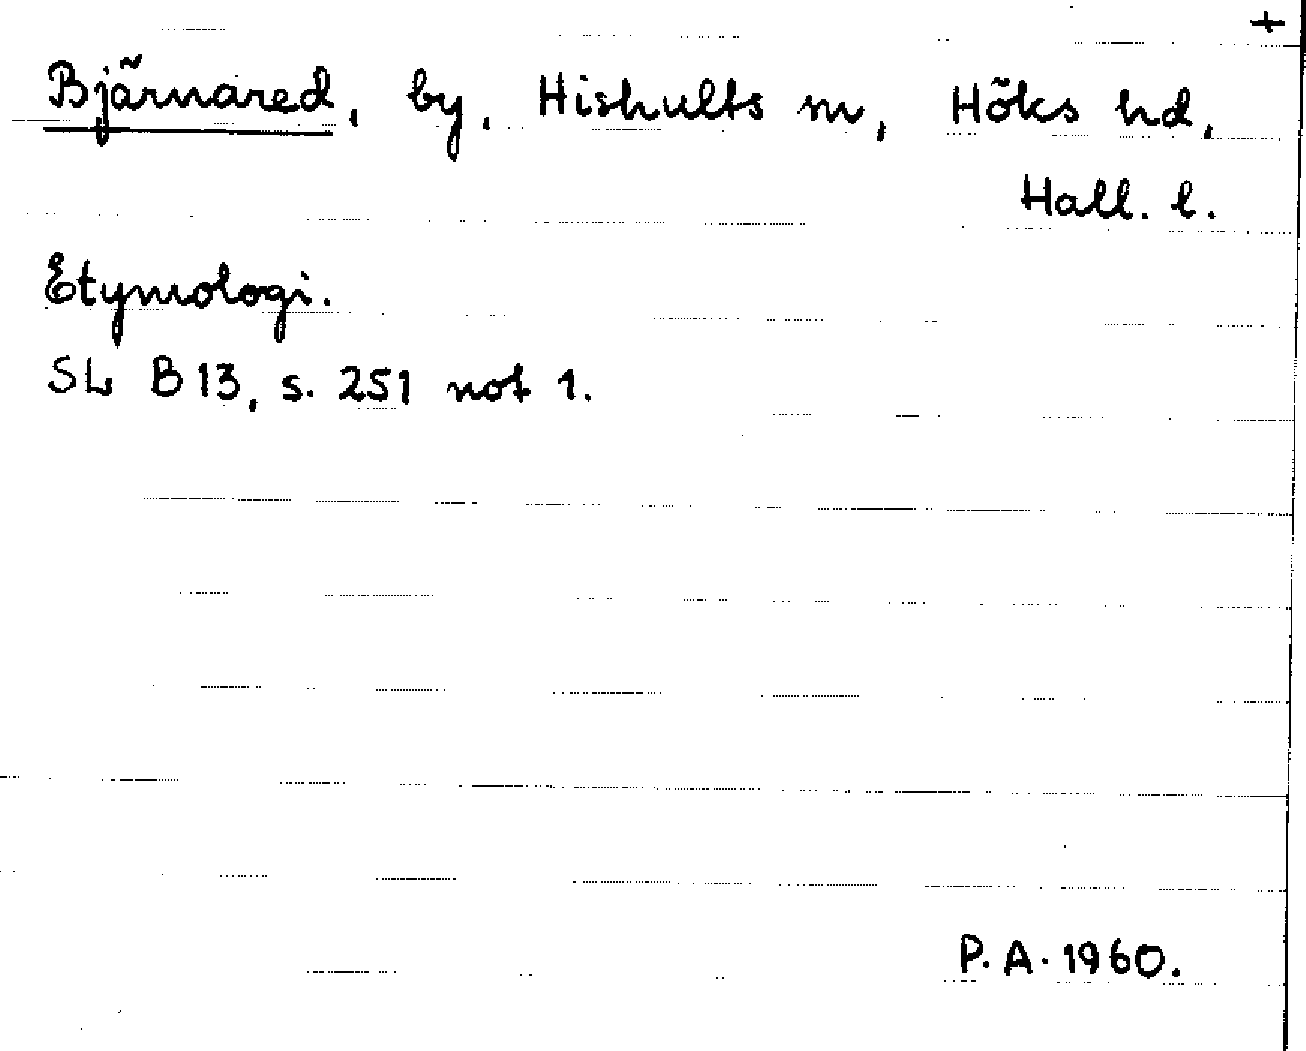 +
Bjärnared, by, Hishults sn, Höks hd,
Hall. l.
Etymologi.
SL B 13, s. 251 not 1.
P. A. 1960.